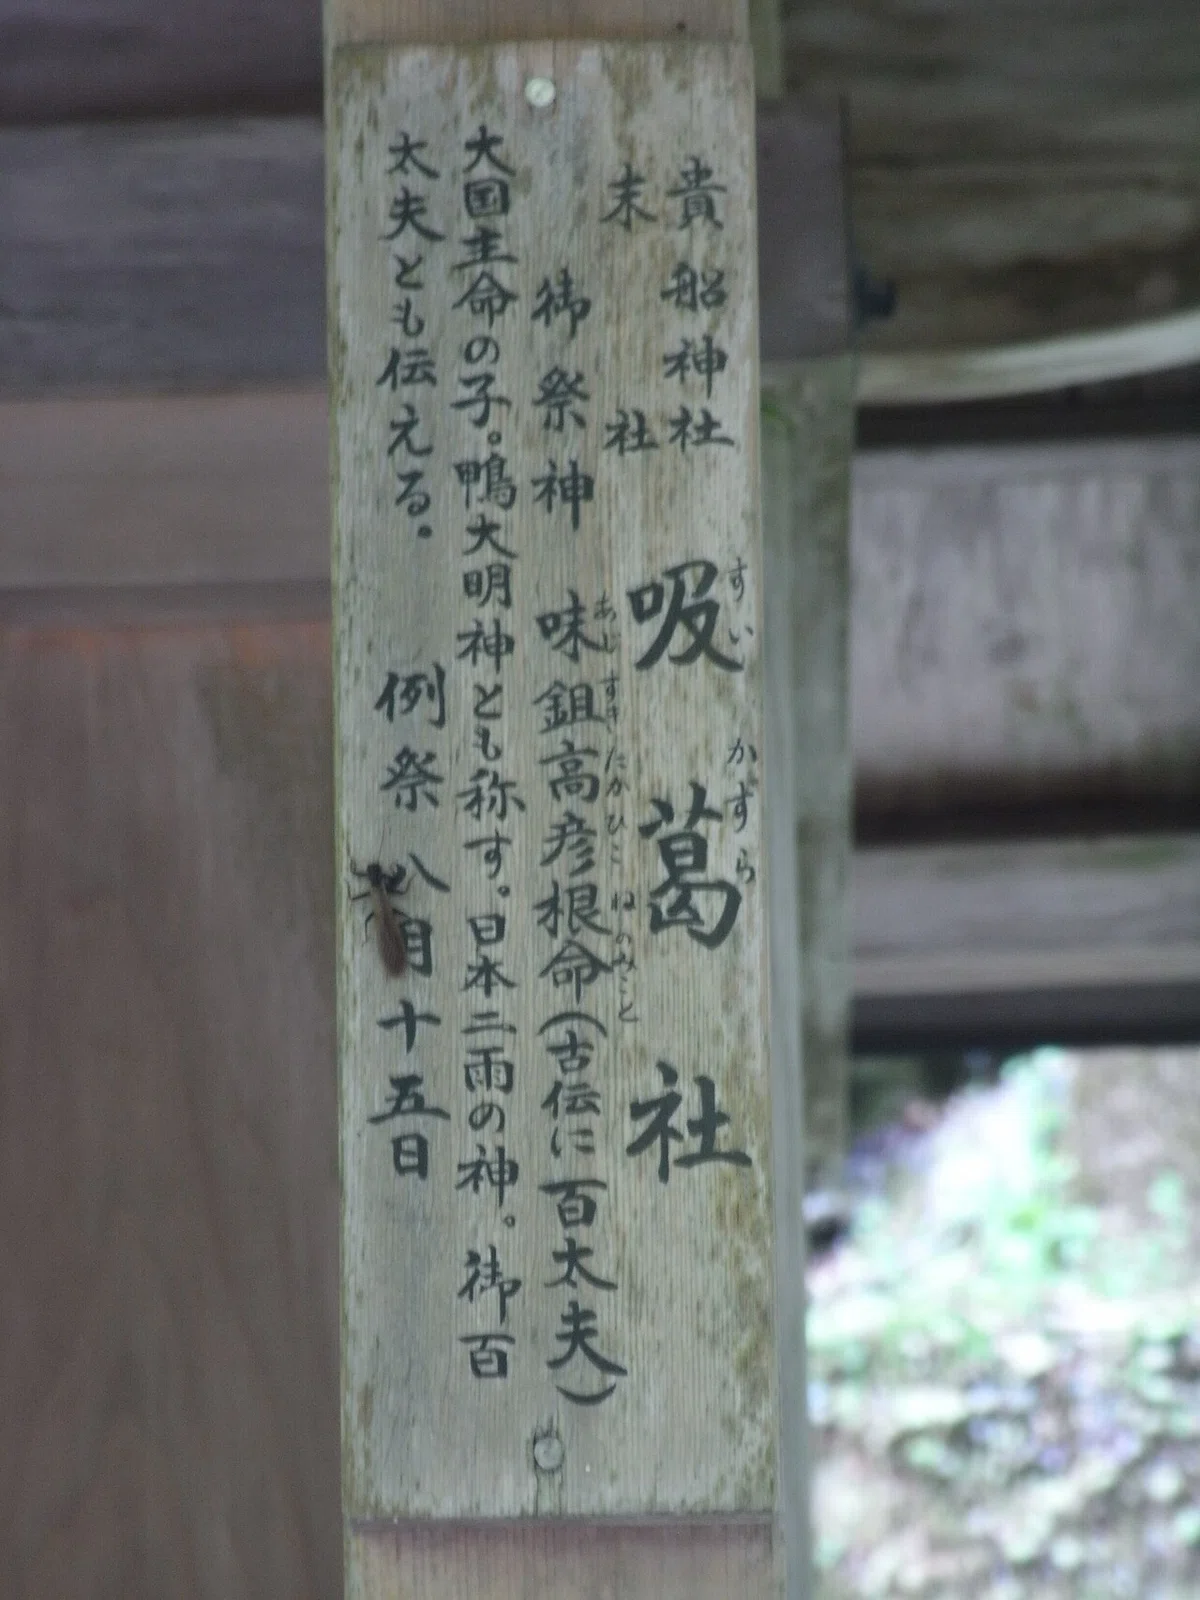 貴船神社
末社
吸葛社
すいかずら
御祭神 味鉏高彦根命(古伝に百太夫)
あじすきたかひこねのみこと
大国主命の子。鴨大明神とも称す。日本二雨の神。御百
太夫とも伝える。 例祭 八月十五日